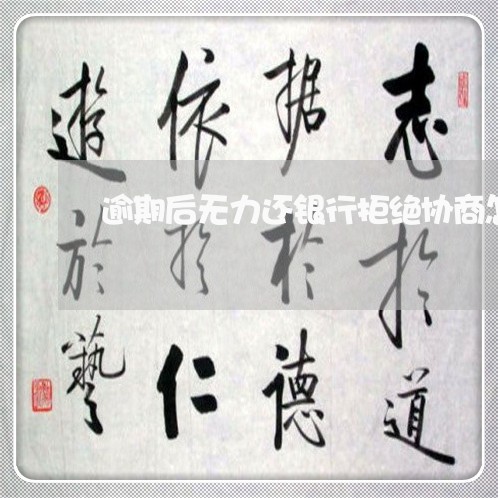 志於道
据於德
依於仁
遊於藝
逾期后无力还银行拒绝协商